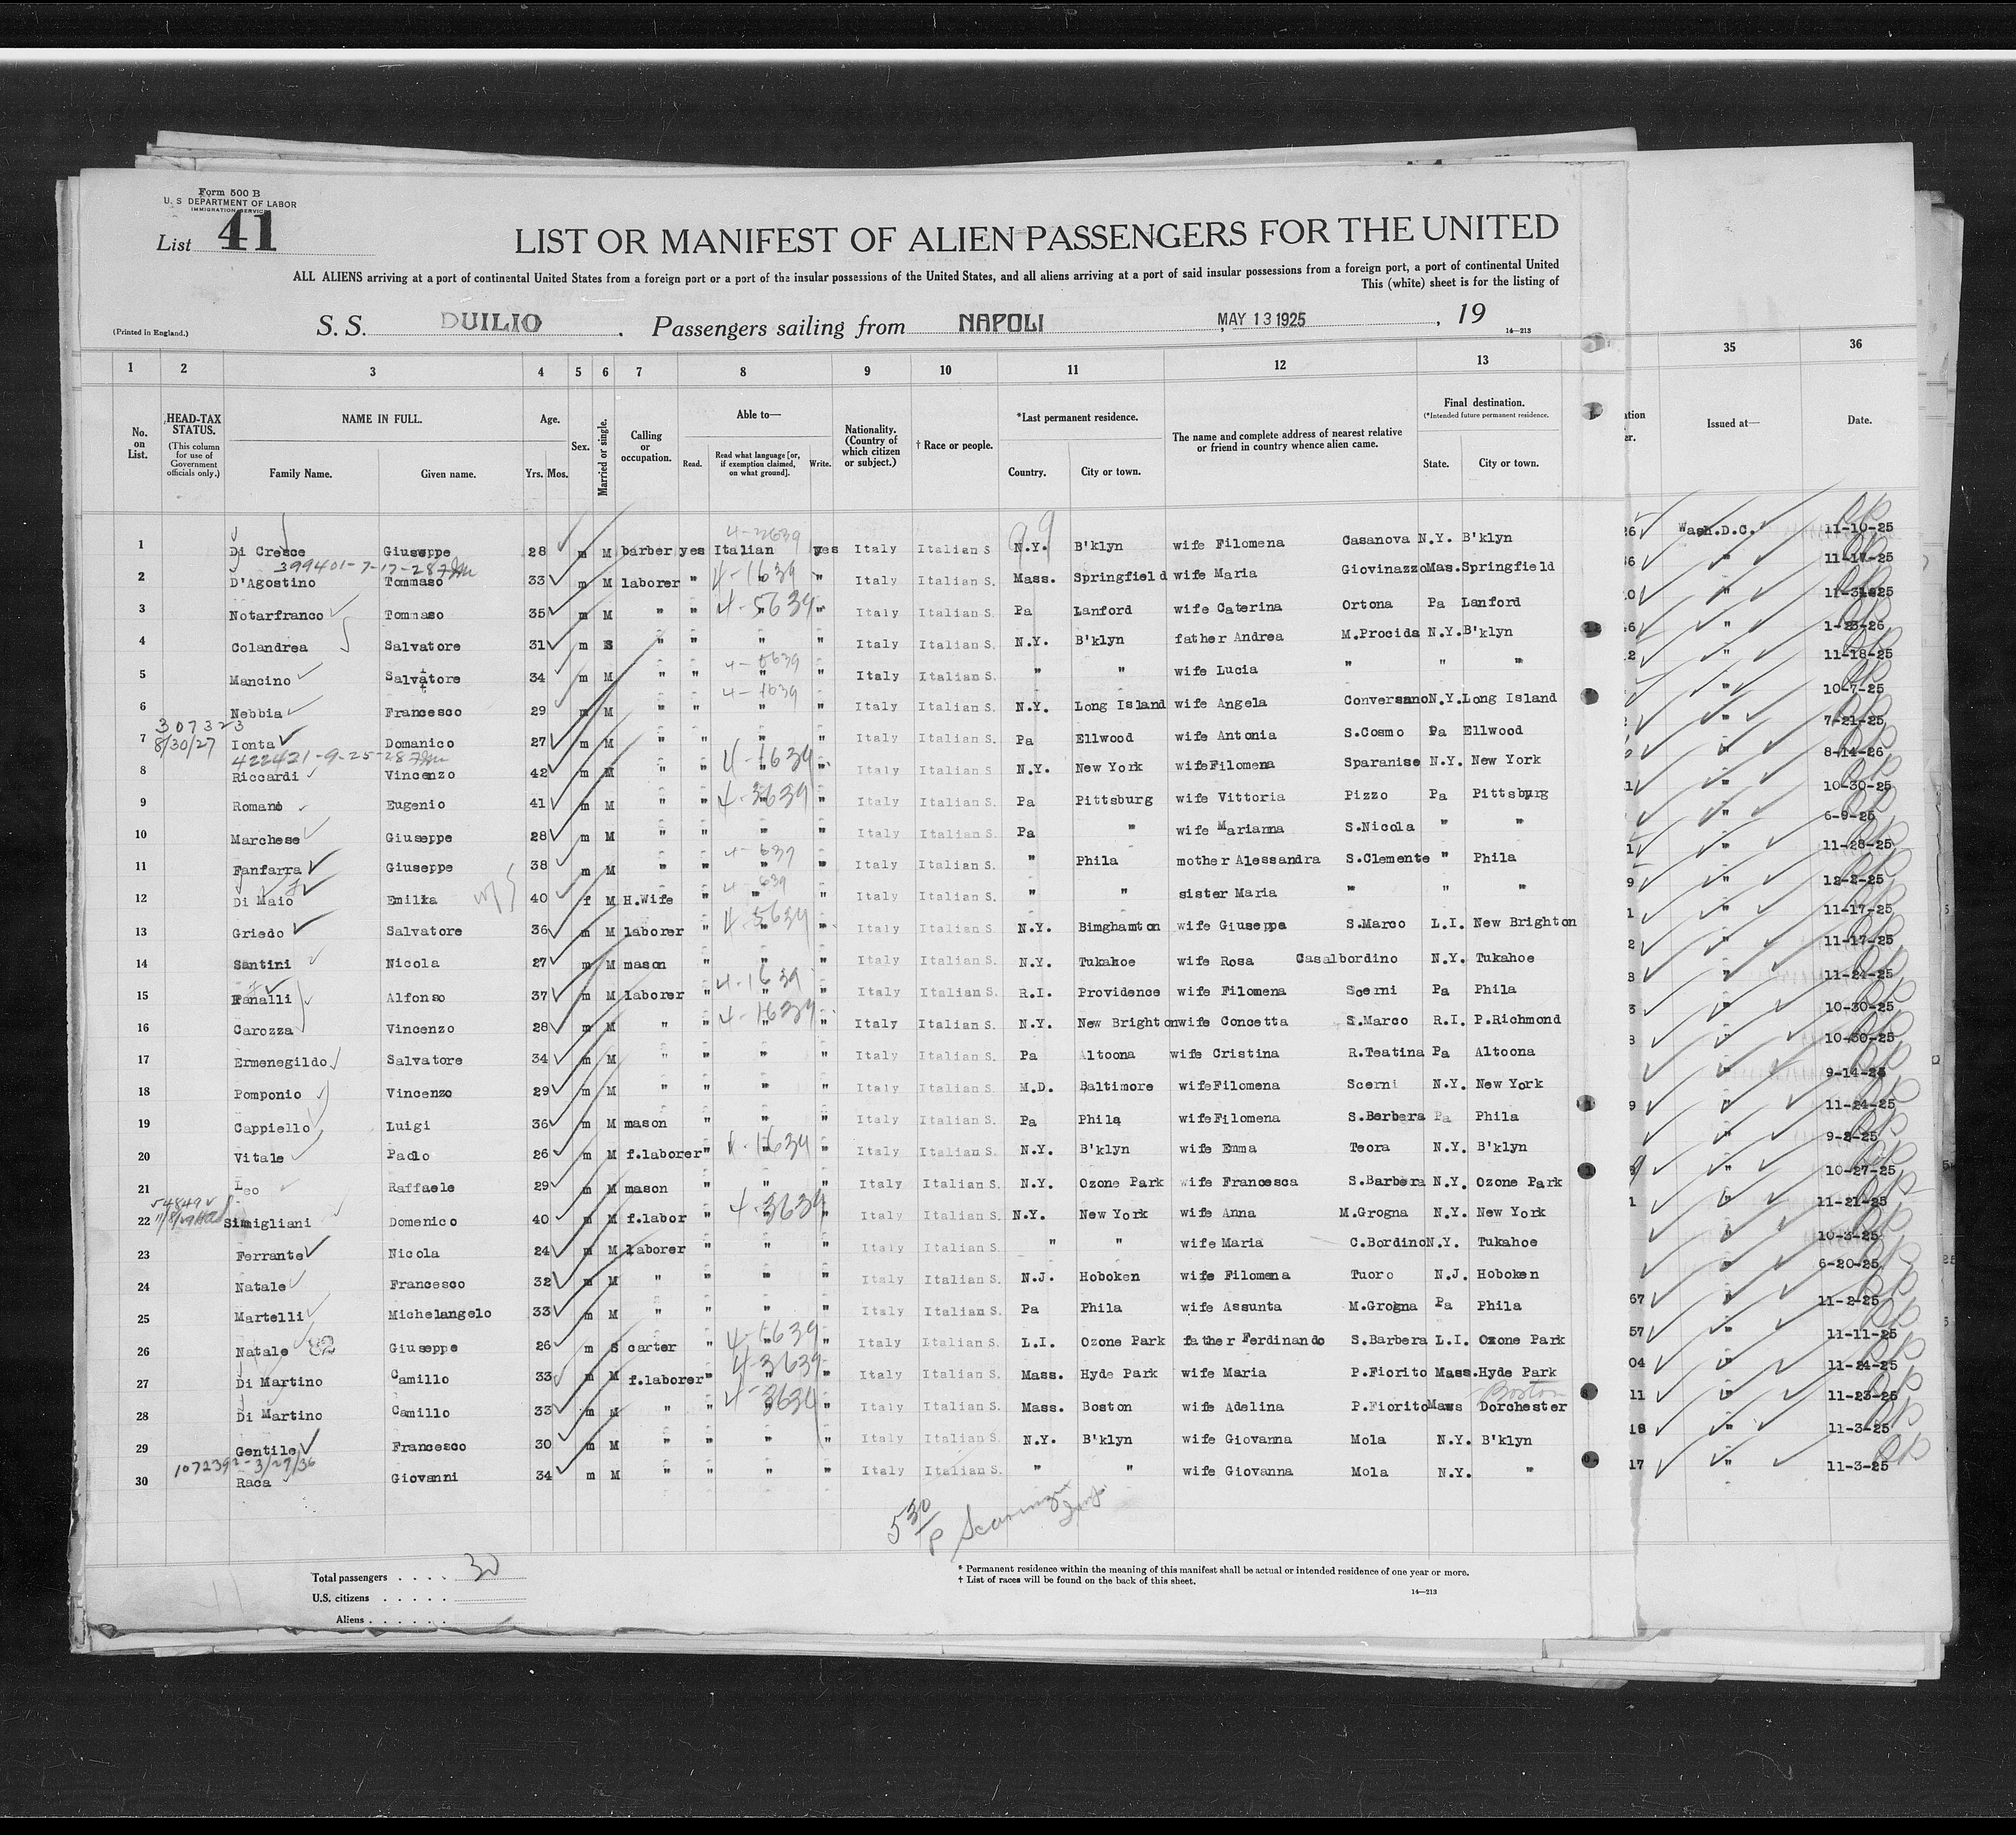 Form 500 B
U. S DEPARTMENT OF LABOR
IMMIGRATION SERVICE
List 41
LIST OR MANIFEST OF ALIEN PASSENGERS FOR THE UNITED
ALL ALIENS arriving at a port of continental United States from a foreign port or a port of the insular possessions of the United States, and all aliens arriving at a port of said insular possessions from a foreign port, a port of continental United
This (white) sheet is for the listing of
(Printed in England.) S. S. DUILIO . Passengers sailing from NAPOLI , MAY 13 1925 , 19 14—213
1 2 3 4 5 6 7 8 9 10 11 12 13 35 36
No. on List. HEAD-TAX STATUS. (This column for use of Government officials only.) NAME IN FULL. Family Name. Given name. Age. Yrs. Mos. Sex. Married or single. Calling or occupation. Able to— Read. Read what language [or, if exemption claimed, on what ground]. Write. Nationality. (Country of which citizen or subject.) † Race or people. *Last permanent residence. Country. City or town. The name and complete address of nearest relative or friend in country whence alien came. Final destination. (*Intended future permanent residence. State. City or town. Issued at— Date.
1 Di Cresce Giuseppe 28 m M barber yes Italian yes Italy Italian S N.Y. B'klyn wife Filomena Casanova N.Y. B'klyn 26 Wash.D.C. 11-10-25
399401-7-17-28
2 D'Agostino Tommaso 33 m M laborer " " " Italy Italian S. Mass. Springfield wife Maria Giovinazzo Mas. Springfield " 11-17-25
3 Notarfranco Tommaso 35 m M " " " " Italy Italian S. Pa Lanford wife Caterina Ortona Pa Lanford "
4 Colandrea Salvatore 31 m S " " " " Italy Italian S. N.Y. B'klyn father Andrea M.Procida N.Y. B'klyn "
5 Mancino Salvatore 34 m M " " " " Italy Italian S. " " wife Lucia " " " " 11-18-25
6 Nebbia Francesco 29 m M " " " " Italy Italian S. N.Y. Long Island wife Angela Conversano N.Y. Long Island " 10-7-25
307323
8/30/27
7 Ionta Domanico 27 m M " " " " Italy Italian S. Pa Ellwood wife Antonia S.Cosmo Pa Ellwood " 7-21-25
422421-9-25-28
8 Riccardi Vincenzo 42 m M " " " " Italy Italian S. N.Y. New York wife Filomena Sparanise N.Y. New York " 8-14-26
9 Romano Eugenio 41 m M " " " " Italy Italian S. Pa Pittsburg wife Vittoria Pizzo Pa Pittsburg " 10-30-25
10 Marchese Giuseppe 28 m M " " " " Italy Italian S. Pa " wife Marianna S.Nicola " " " 6-9-25
11 Fanfarra Giuseppe 38 m M " " " " Italy Italian S. " Phila mother Alessandra S.Clemente " Phila " 11-28-25
12 Di Maio Emilia 40 f M H.Wife " " " Italy Italian S. " " sister Maria " " " " 12-2-25
13 Griedo Salvatore 36 m M laborer " " " Italy Italian S. N.Y. Bimghamton wife Giuseppa S.Marco L.I. New Brighton " 11-17-25
14 Santini Nicola 27 m M mason " " " Italy Italian S. N.Y. Tukahoe wife Rosa Casalbordino N.Y. Tukahoe " 11-17-25
15 Fanalli Alfonso 37 m M laborer " " " Italy Italian S. R.I. Providence wife Filomena Scerni Pa Phila " 11-24-25
16 Carozza Vincenzo 28 m M " " " " Italy Italian S. N.Y. New Brighton wife Concetta S.Marco R.I. P.Richmond " 10-30-25
17 Ermenegildo Salvatore 34 m M " " " " Italy Italian S. Pa Altoona wife Cristina R.Teatina Pa Altoona " 10-30-25
18 Pomponio Vincenzo 29 m M " " " " Italy Italian S. M.D. Baltimore wife Filomena Scerni N.Y. New York " 9-14-25
19 Cappiello Luigi 36 m M mason " " " Italy Italian S. Pa Phila wife Filomena S.Barbera Pa Phila " 11-24-25
20 Vitale Paolo 26 m M f.laborer " " " Italy Italian S. N.Y. B'klyn wife Emma Teora N.Y. B'klyn " 9-2-25
21 Leo Raffaele 29 m M mason " " " Italy Italian S. N.Y. Ozone Park wife Francesca S.Barbera N.Y. Ozone Park " 10-27-25
22 Simigliani Domenico 40 m M f.labor " " " Italy Italian S. N.Y. New York wife Anna M.Grogna N.Y. New York " 11-21-25
23 Ferrante Nicola 24 m M laborer " " " Italy Italian S. " " wife Maria C.Bordino N.Y. Tukahoe " 10-3-25
24 Natale Francesco 32 m M " " " " Italy Italian S. N.J. Hoboken wife Filomena Tuoro N.J. Hoboken " 6-20-25
25 Martelli Michelangelo 33 m M " " " " Italy Italian S. Pa Phila wife Assunta M.Grogna Pa Phila 67 " 11-2-25
26 Natale Giuseppe 26 m S carter " " " Italy Italian S. L.I. Ozone Park father Ferdinando S.Barbera L.I. Ozone Park 57 " 11-11-25
27 Di Martino Camillo 33 m M f.laborer " " " Italy Italian S. Mass. Hyde Park wife Maria P.Fiorito Mass. Hyde Park 04 " 11-24-25
Boston
28 Di Martino Camillo 33 m M " " " " Italy Italian S. Mass. Boston wife Adelina P.Fiorito Mass Dorchester 11 " 11-23-25
29 Gentile Francesco 30 m M " " " " Italy Italian S. N.Y. B'klyn wife Giovanna Mola N.Y. B'klyn 18 " 11-3-25
1072392-3/27/36
30 Raca Giovanni 34 m M " " " " Italy Italian S. " " wife Giovanna Mola N.Y. " 17 " 11-3-25
Total passengers . . . . 30
U.S. citizens . . . . .
Aliens . . . . . .
* Permanent residence within the meaning of this manifest shall be actual or intended residence of one year or more.
† List of races will be found on the back of this sheet.
14—213